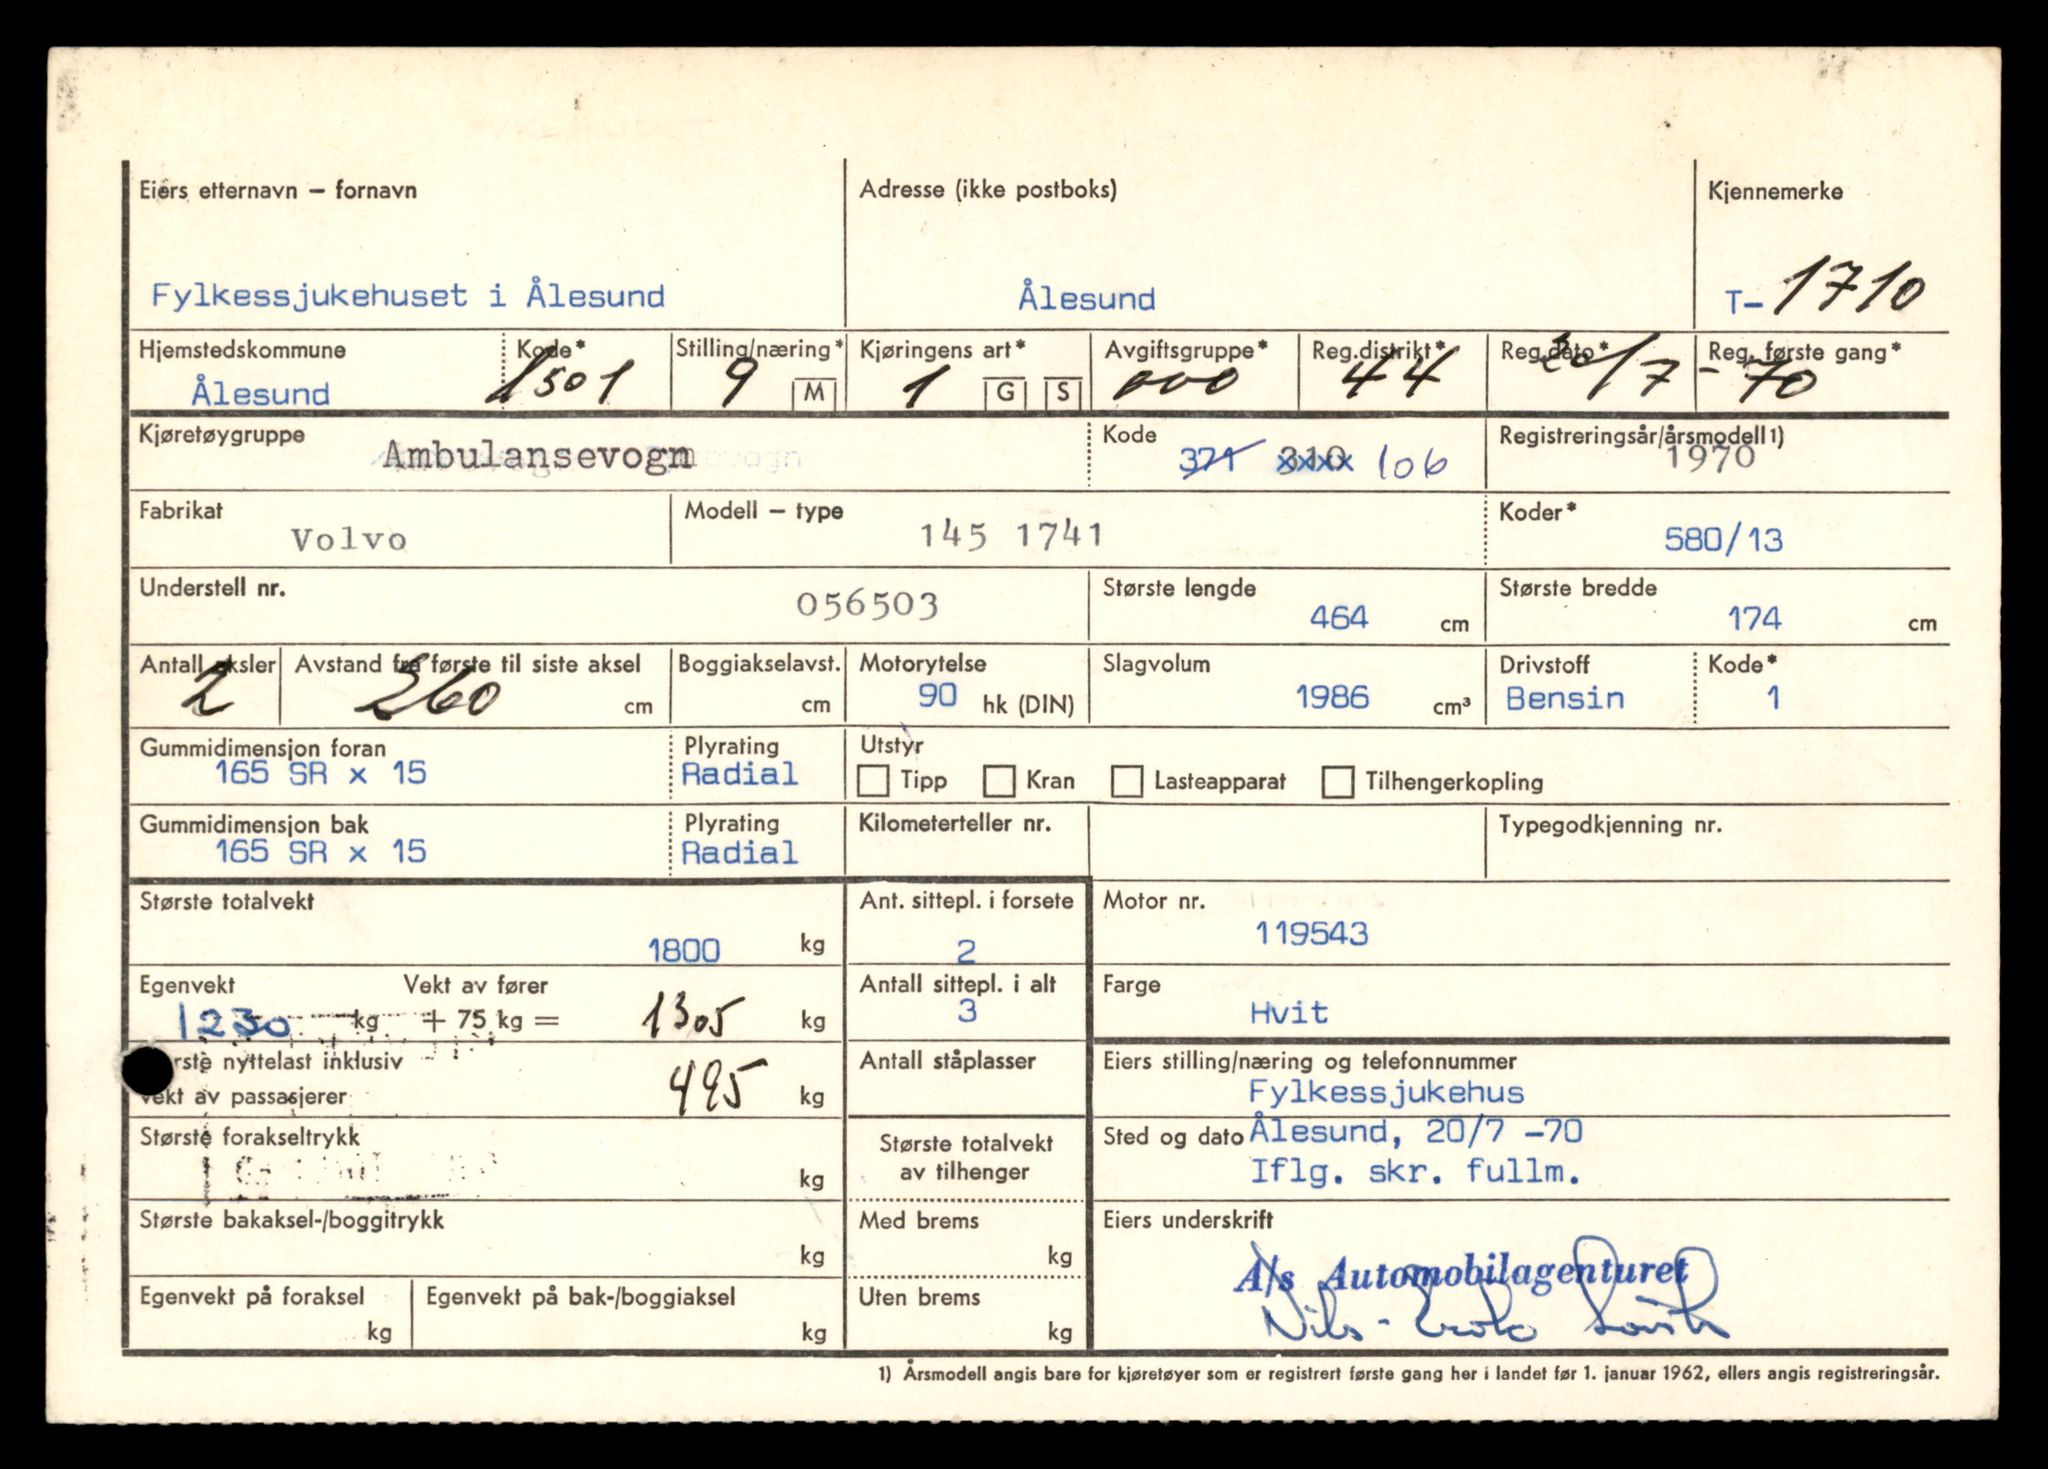 Eiers etternavn – fornavn
Adresse (ikke postboks)
Kjennemerke
Fylkessjukehuset i Ålesund
Ålesund
T- 1710
Hjemstedskommune
Kode*
Stilling/næring*
Kjøringens art*
Avgiftsgruppe*
Reg.distrikt*
Reg.dato*
Reg. første gang*
Ålesund
1501
9 M
1 G S
000
44
20/7 - 70
Kjøretøygruppe
Ambulansevogn
Kode
371 310 106
Registreringsår/årsmodell 1)
1970
Fabrikat
Volvo
Modell – type
145 1741
Koder*
580/13
Understell nr.
056503
Største lengde
464 cm
Største bredde
174 cm
Antall aksler
2
Avstand fra første til siste aksel
260 cm
Boggiakselavst.
cm
Motorytelse
90 hk (DIN)
Slagvolum
1986 cm³
Drivstoff
Bensin
Kode*
1
Gummidimensjon foran
165 SR x 15
Plyrating
Radial
Utstyr
Tipp Kran Lasteapparat Tilhengerkopling
Gummidimensjon bak
165 SR x 15
Plyrating
Radial
Kilometerteller nr.
Typegodkjenning nr.
Største totalvekt
1800 kg
Ant. sittepl. i forsete
2
Motor nr.
119543
Egenvekt
Vekt av fører
1230 kg + 75 kg = 1305 kg
Antall sittepl. i alt
3
Farge
Hvit
nyttelast inklusiv
vekt av passasjerer
495 kg
Antall ståplasser
Eiers stilling/næring og telefonnummer
Fylkessjukehus
Største forakseltrykk
kg
Største totalvekt
av tilhenger
Sted og dato Ålesund, 20/7 -70
Iflg. skr. fullm.
Største bakaksel-/boggitrykk
kg
Med brems
kg
Eiers underskrift
A/s Automobilagenturet
Egenvekt på foraksel
kg
Egenvekt på bak-/boggiaksel
kg
Uten brems
kg
Nils-
1) Årsmodell angis bare for kjøretøyer som er registrert første gang her i landet før 1. januar 1962, ellers angis registreringsår.